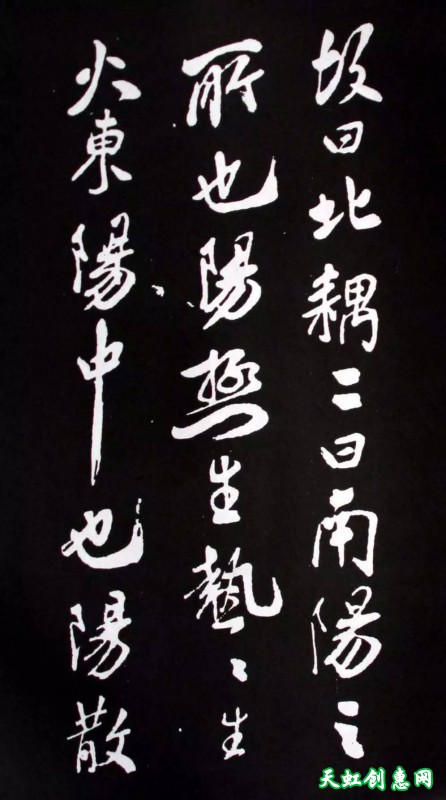 故曰北耦二曰南陽之
所也陽極生熱々生
火東陽中也陽散
天虹创惠网